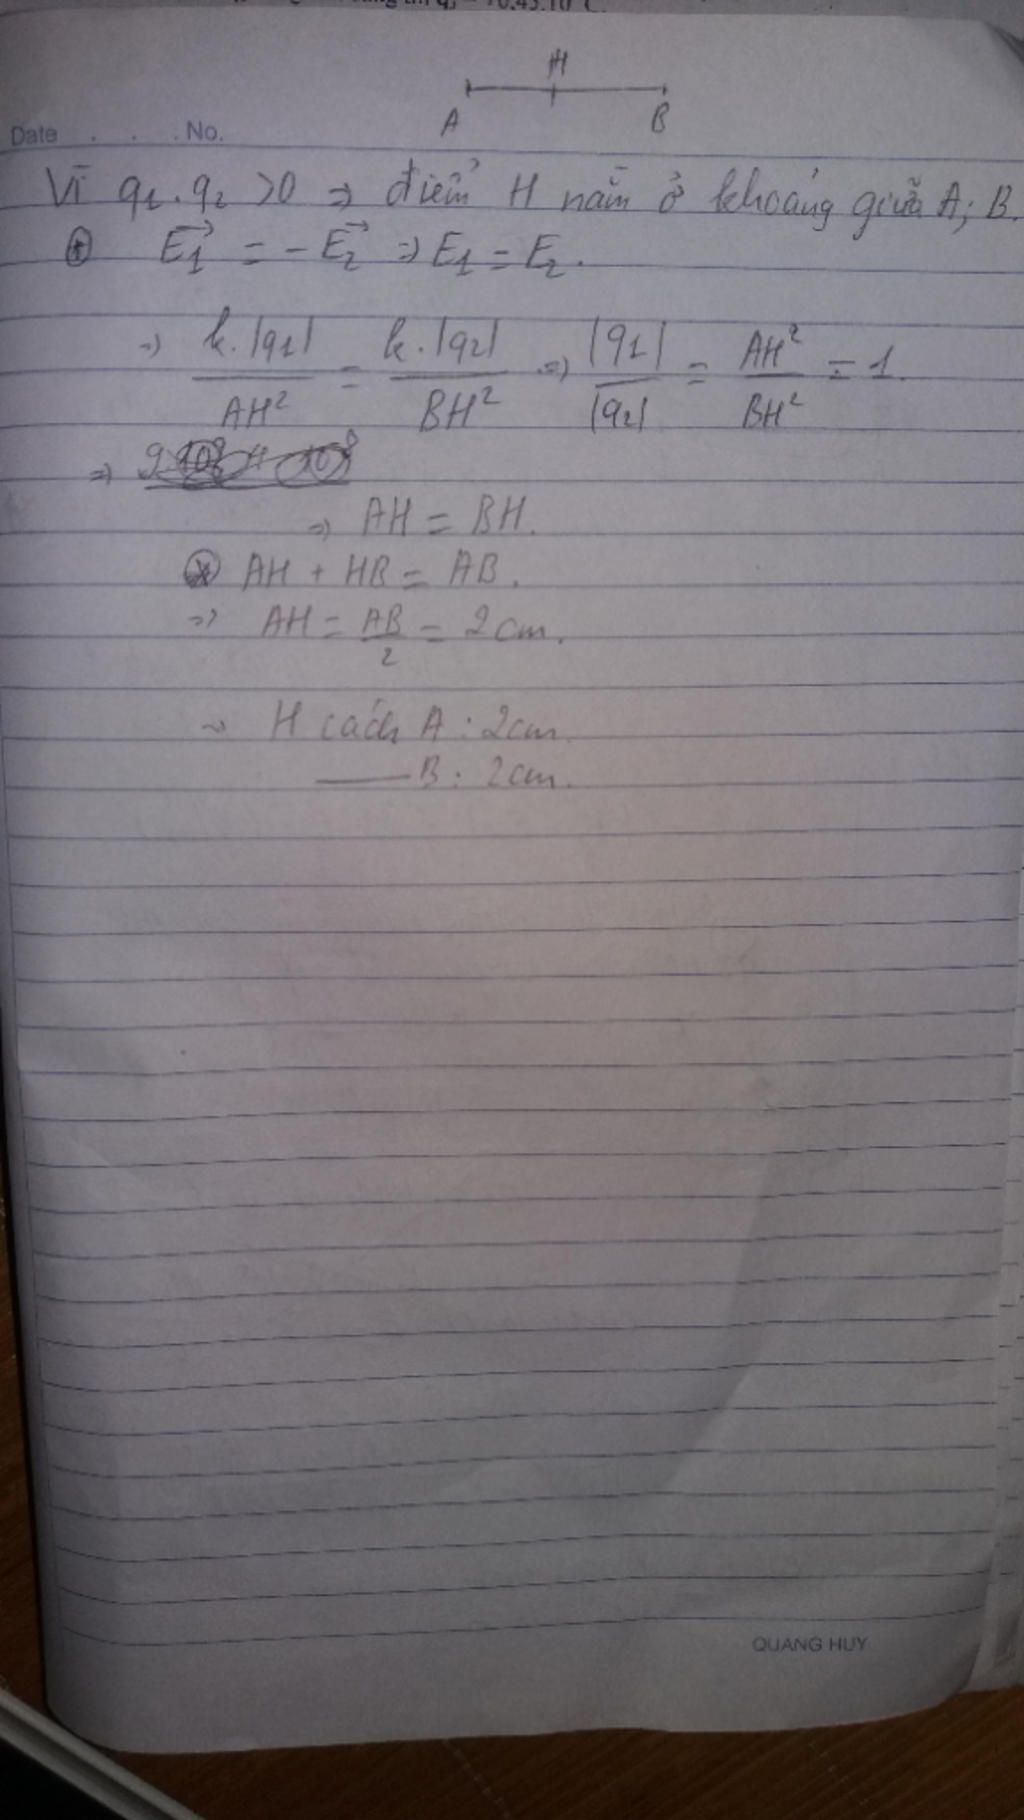 H
A B
Date . . . No.
Vì q1.q2 >0 => điểm H nằm ở khoảng giữa A; B.
E1 = - E2 => E1 = E2.
=> k.|q1| / AH² = k.|q2| / BH² => |q1| / |q2| = AH² / BH² = 1.
=>
=> AH = BH.
AH + HB = AB.
=> AH = AB / 2 = 2cm.
~ H cách A : 2cm.
—— B : 2cm.
QUANG HUY